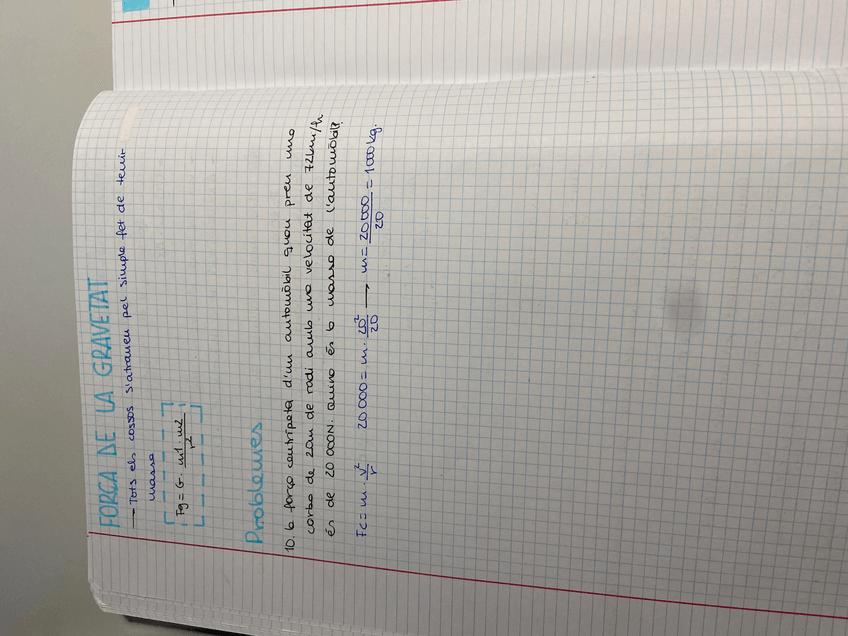 FORÇA DE LA GRAVETAT
→ Tots els cossos s'atrauen pel simple fet de tenir
massa
Fg = G · m1 · m2 / r²
Problemes
10. la força centrípeta d'un automòbil quan pren una
corba de 20m de radi amb una velocitat de 72km/h
és de 20 000N. Quina és la massa de l'automòbil?
Fc = m · v²/r 20 000 = m · 20²/20 → m = 20 000/20 = 1000 kg.